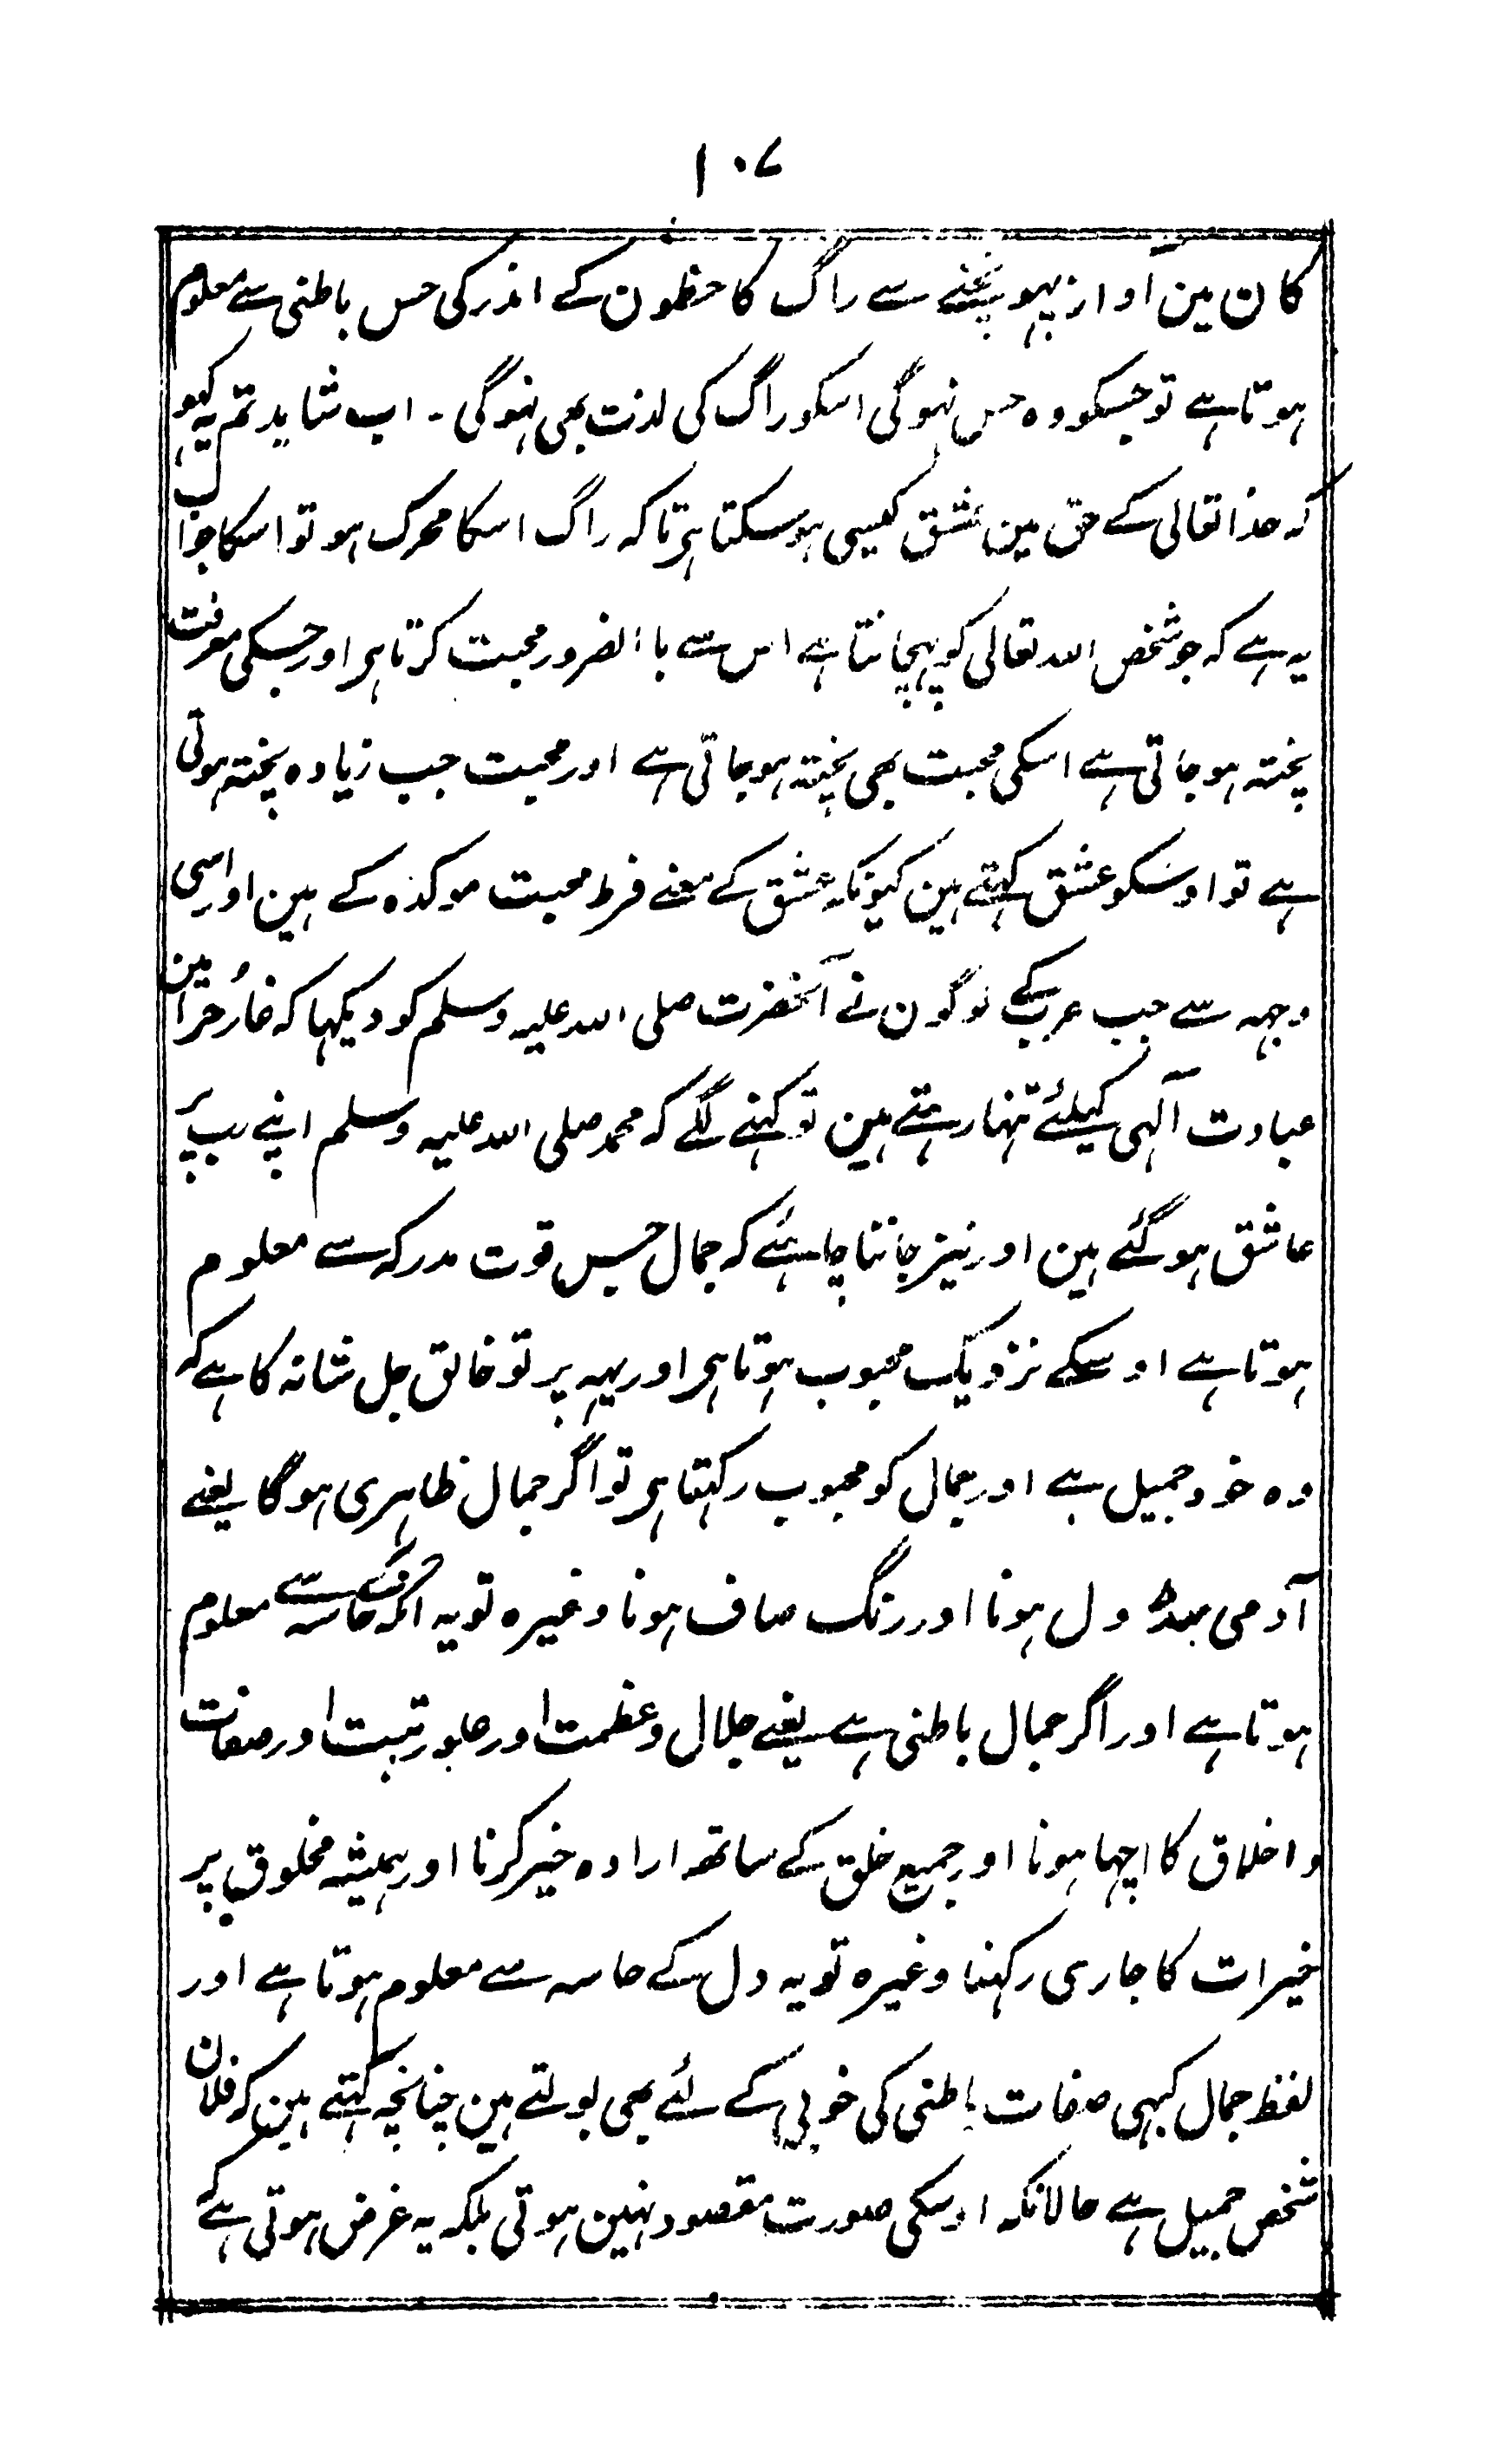 ۱۰۷
کان مین آواز پہونچنے سے راگ کا حظ دون کے اندر کی حس باطنی سے معلوم
ہوتا ہے تو جسکو وہ حس نہوگی اسکو راگ کی لذت بھی نہوگی ۔ اب شاید تم یہ کہو
کہ خدا تعالی کے حق مین عشق کیسی ہوسکتا ہی تاکہ راگ اسکا محرک ہو تو اسکا جواب
یہ ہے کہ جو شخص اللہ تعالی کو پہچانتا ہے اس سے باالضرور محبت کرتا ہی اور جسکی معرفت
پختہ ہوجاتی ہے اسکی محبت بھی پختہ ہوجاتی ہے اور محبت جب زیادہ پختہ ہوتی
ہے تو اوسکو عشق کہتے ہین کیونکہ عشق کے معنے فرط محبت موکدہ کے ہین اور اسی
وجہہ سے جب عرب کے لوگون نے آنحضرت صلی اللہ علیہ وسلم کو دیکہا کہ غار حرا مین
عبادت آلہی کیلئے تنہا رہتے ہین تو کہنے لگے کہ محمد صلی اللہ علیہ وسلم اپنے رب پر
عاشق ہوگئے ہین اور نیز جاننا چاہئے کہ جمال جس قوت مدرکہ سے معلوم
ہوتا ہے اوسکے نزدیک محبوب ہوتا ہی اور یہہ پرتو خالق جل شانہ کا ہے کہ
وہ خود جمیل ہے اور جمال کو محبوب رکہتا ہی تو اگر جمال ظاہری ہوگا یعنے
آدمی سڈول ہونا اور رنگ صاف ہونا وغیرہ تو یہ آنکہ کے حاسہ سے معلوم
ہوتا ہے اور اگر جمال باطنی ہے یعنے جلال وعظمت اور علو رتبت اور صفات
واخلاق کا اچہا ہونا اور جمیع خلق کے ساتھ ارادہ خیر کرنا اور ہمیشہ مخلوق پر
خیرات کا جاری رکہنا وغیرہ تو یہ دل کے حاسہ سے معلوم ہوتا ہے اور
لفظ جمال کبہی صفات باطنی کی خوبی کے لئے بھی بولتے ہین چنانچہ کہتے ہین کہ فلان
شخص جمیل ہے حالانکہ اوسکی صورت مقصود نہین ہوتی بلکہ یہ غرض ہوتی ہے کہ